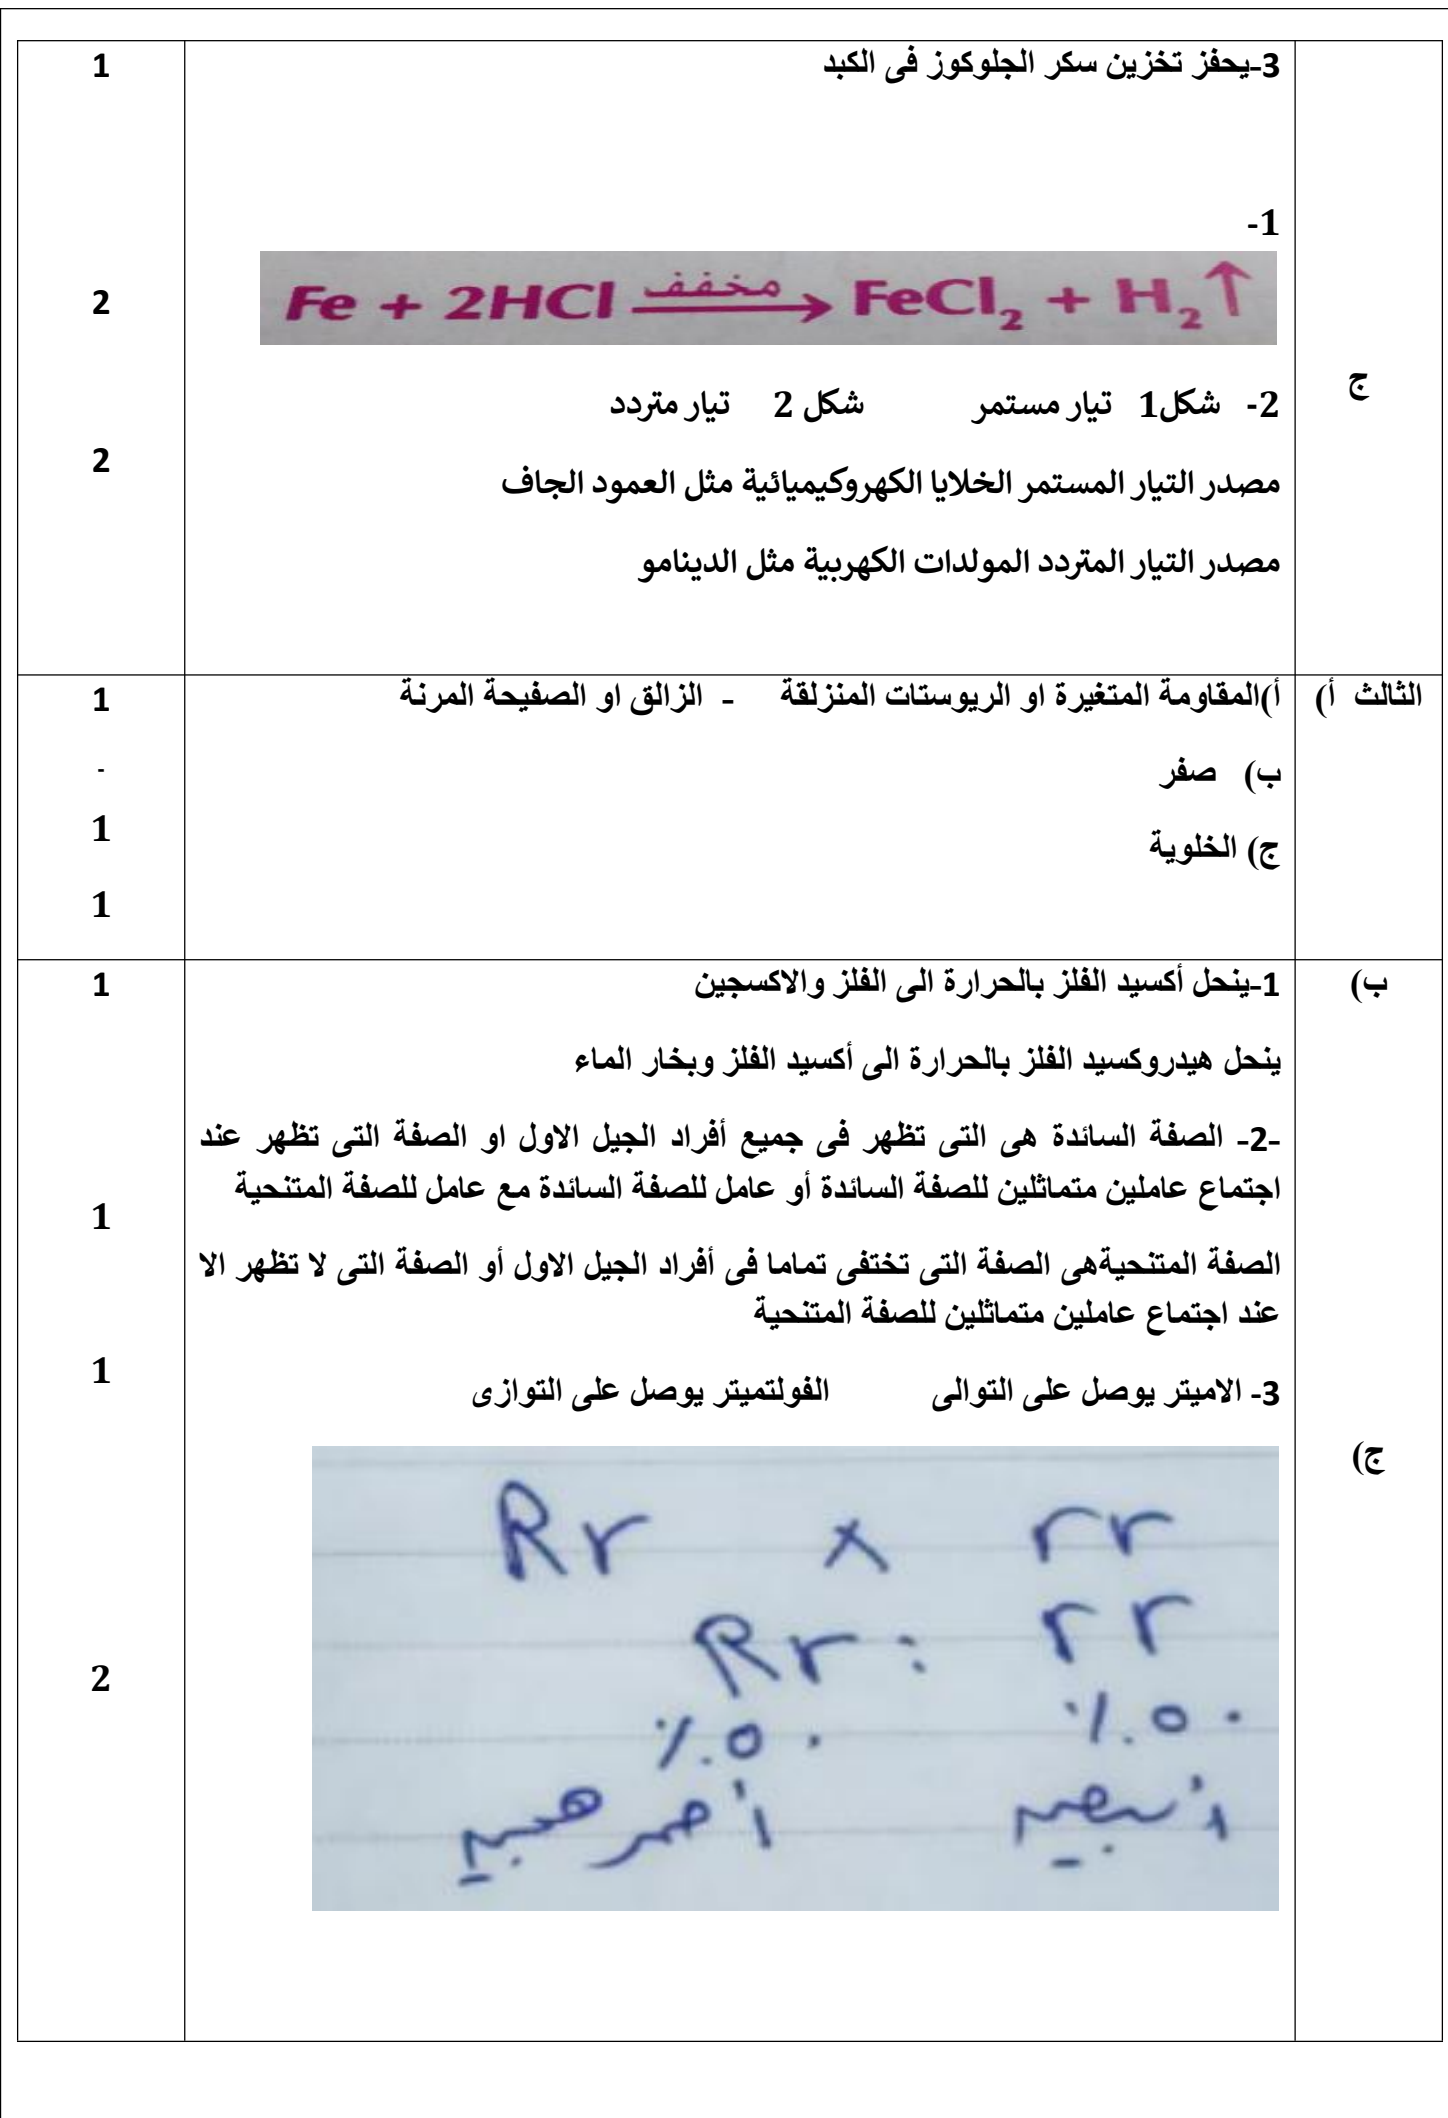 3-يحفز تخزين سكر الجلوكوز فى الكبد
1
ج
1-
Fe + 2HCl مخفف → FeCl₂ + H₂↑
2
2- شكل1 تيار مستمر شكل 2 تيار متردد
2
مصدر التيار المستمر الخلايا الكهروكيميائية مثل العمود الجاف
مصدر التيار المتردد المولدات الكهربية مثل الدينامو
الثالث أ)
أ)المقاومة المتغيرة او الريوستات المنزلقة - الزالق او الصفيحة المرنة
1
ب) صفر
-
ج) الخلوية
1
1
ب)
1-ينحل أكسيد الفلز بالحرارة الى الفلز والاكسجين
1
ينحل هيدروكسيد الفلز بالحرارة الى أكسيد الفلز وبخار الماء
-2- الصفة السائدة هى التى تظهر فى جميع أفراد الجيل الاول او الصفة التى تظهر عند
اجتماع عاملين متماثلين للصفة السائدة أو عامل للصفة السائدة مع عامل للصفة المتنحية
1
الصفة المتنحيةهى الصفة التى تختفى تماما فى أفراد الجيل الاول أو الصفة التى لا تظهر الا
عند اجتماع عاملين متماثلين للصفة المتنحية
3- الاميتر يوصل على التوالى الفولتميتر يوصل على التوازى
1
ج)
Rr × rr
Rr : rr
٪٥٠ ٪٥٠
أبيض أحمر هجين
2